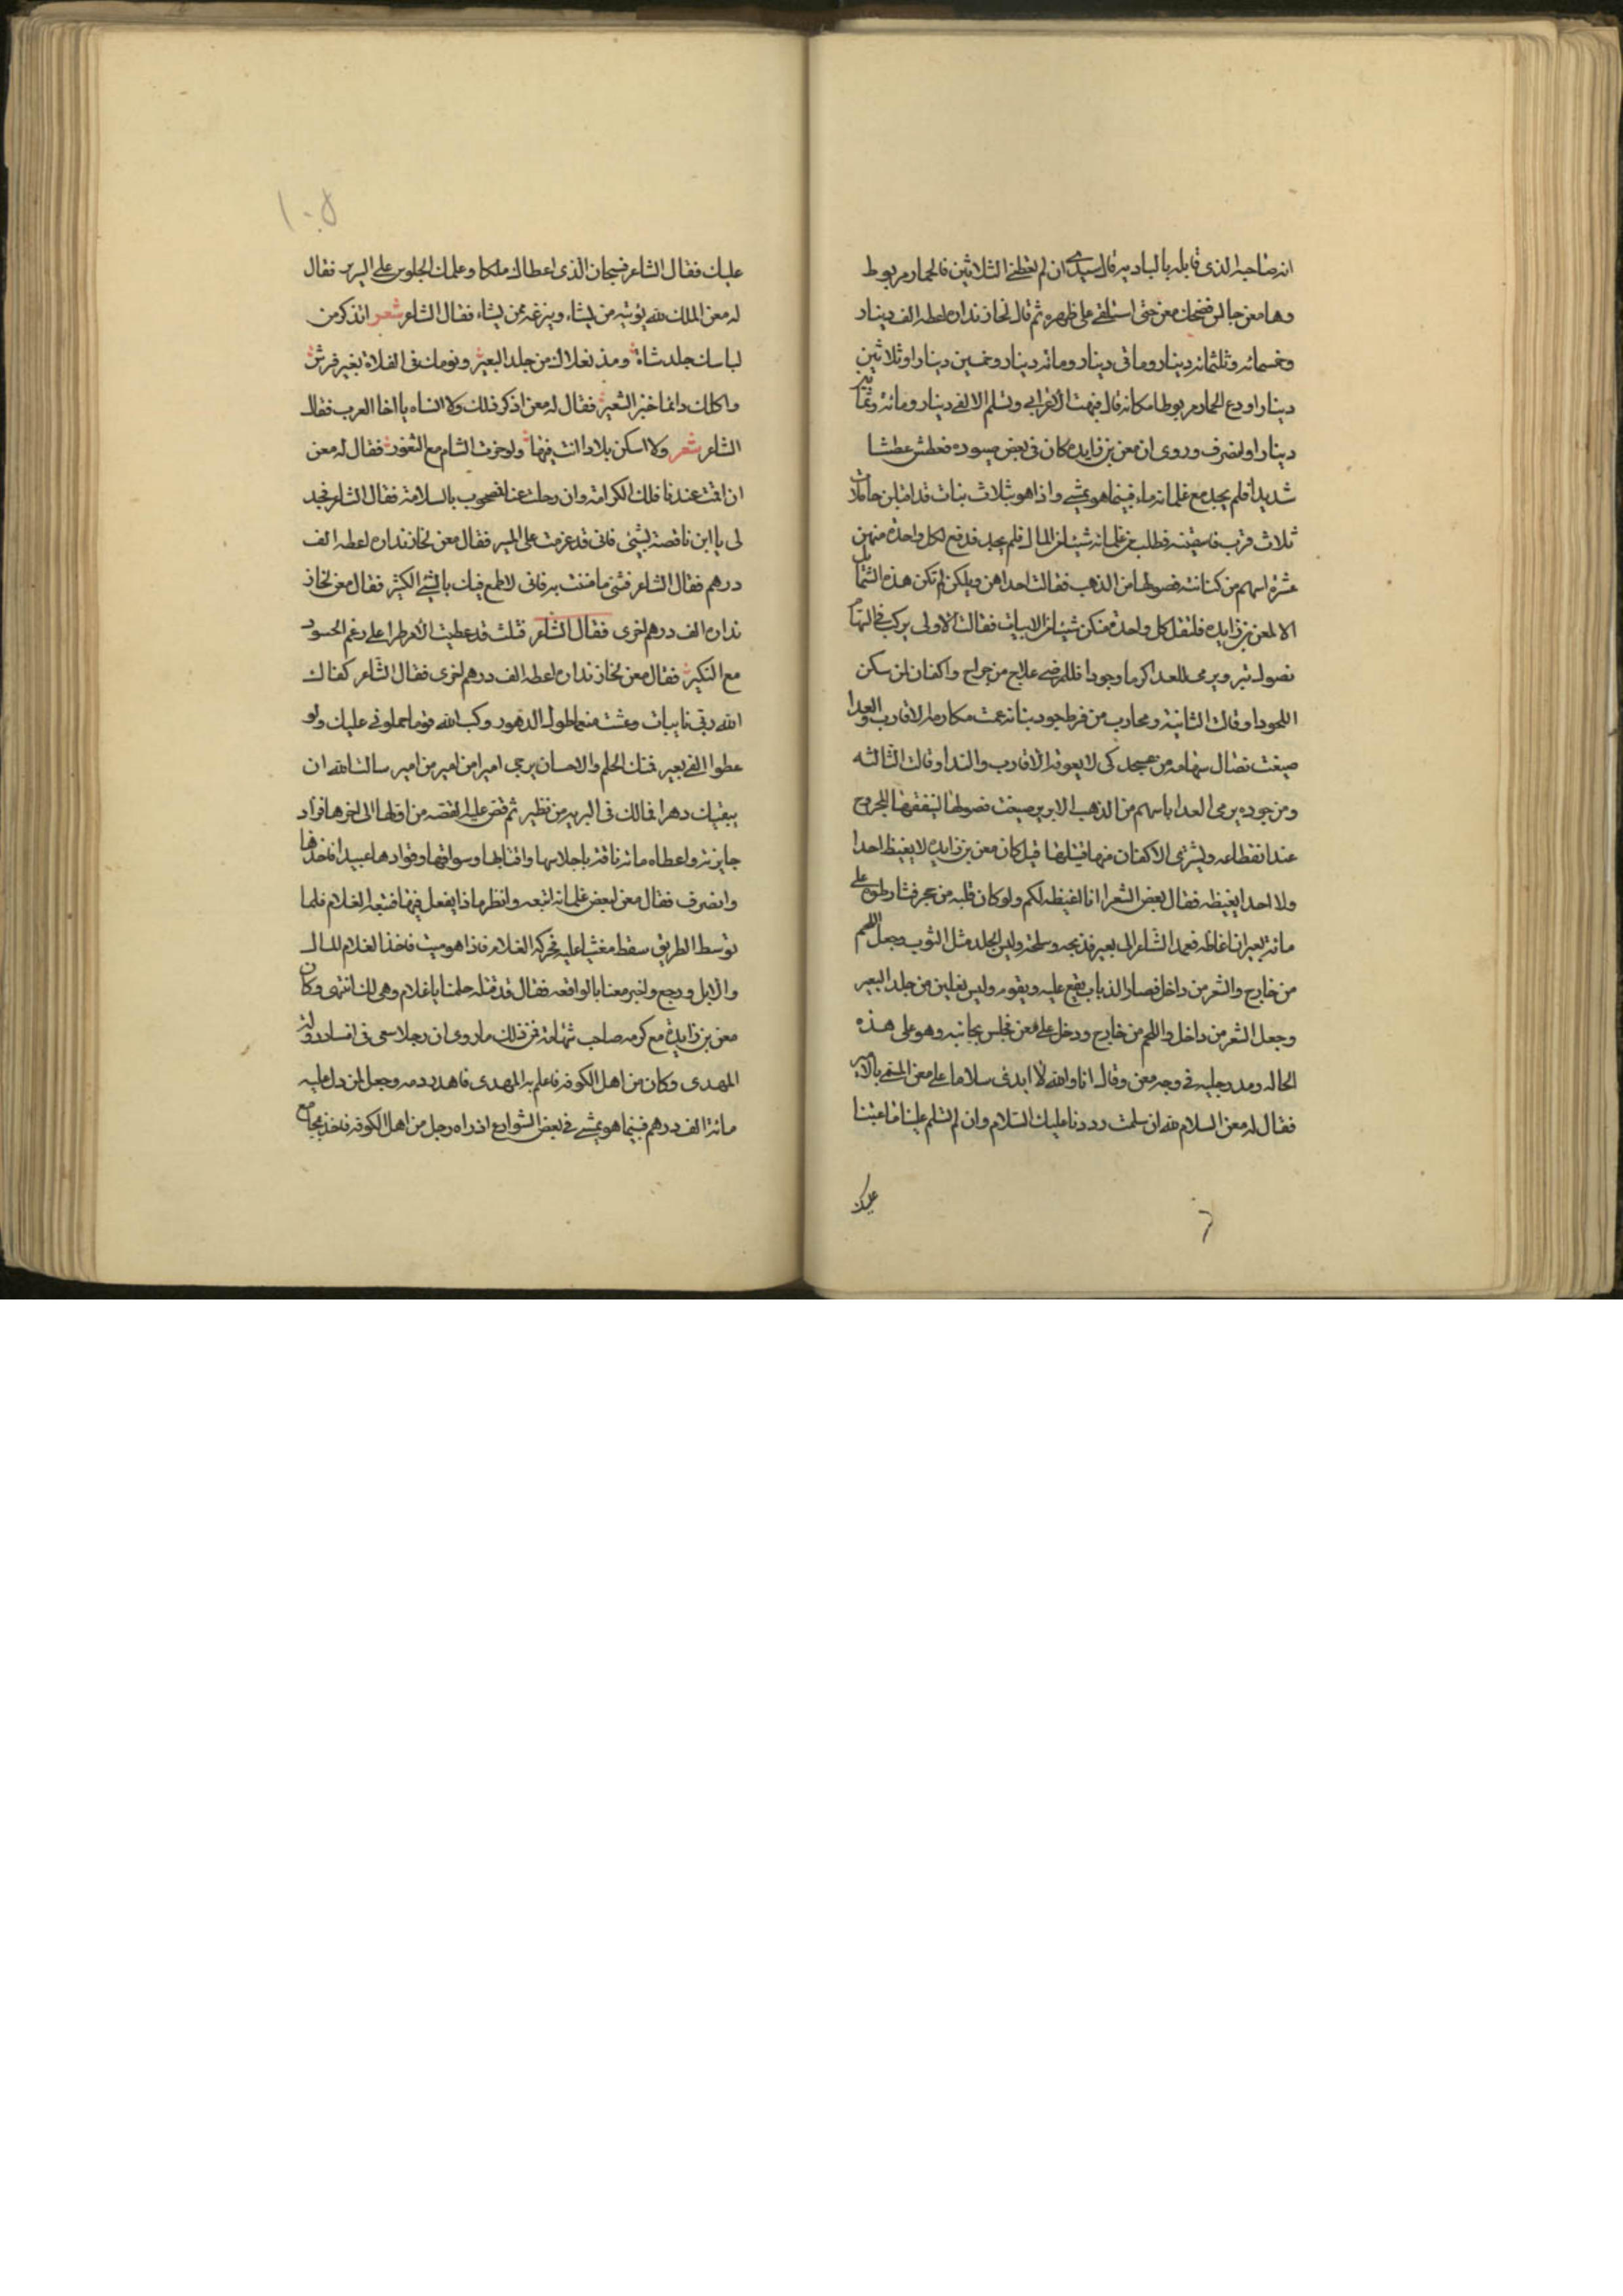 انه صاحبه الذي قابله بالباديه قال سيدي ان لم تعطني الثلاثين فالحمار مربوط
وها معن جالس فضحك معن حتى استلقى على ظهره ثم قال لخازنداره اعطه الف دينار
وخمسمائه وثلثمائه دينار ومائتي دينار ومائه دينار وخمسين دينارا وثلاثين
دينارا ودع الحمار مربوطا مكانه قال فبهت الاعرابي وتسلم الالفي دينار ومائة وثمانين
دينارا وانصرف وروى ان معن بن زايده كان في بعض صيوده فعطش عطشا
شديدا فلم يجد مع غلمانه ماء فبينما هو يمشي واذا هو بثلاث بنات قد اقبلن حاملات
ثلاث قرب فاسقينه فطلب من غلمانه شيئا من المال فلم يجد فدفع لكل واحدة منهن
عشرة اسهم من كنانته نصولها من الذهب فقالت احداهن ويلكن لم تكن هذه الشمائل
الا لمعن بن زايده فلتقل كل واحدة منكن شيئا من الابيات فقالت الاولى يركب في السهام
نصول تبر ويرمى للعدا كرما وجودا فللمرضى علاج من جراح واكفان لمن سكن
اللحودا وقالت الثانية ومحارب من فرط جود بنانه عمت مكارمه الاقارب والعدا
صيغت نصال سهامه من عسجد كي لا يعوقه الاقارب والندا وقالت الثالثه
ومن جوده يرمى العداة باسهم من الذهب الابريز صيغت نصولها لينفقها المجروح
عند انقطاعه ويشترى الاكفان منها قتيلها قيل كان معن بن زايدة لا يغيظ احدا
ولا احد يغيظه فقال بعض الشعرا انا اغيظه لكم ولو كان قلبه من حجر فشارطوه على
مائة بعير ان اغاظه فعمد الشاعر الى بعير فذبحه وسلخه ولبس الجلد مثل الثوب وجعل اللحم
من خارج والشعر من داخل فصار الذباب يقع عليه ويقوم ولبس نعلين من جلد البعير
وجعل الشعر من داخل واللحم من خارج ودخل على معن فجلس بجانبه وهو على هذه
الحاله ومد رجليه في وجه معن وقال انا والله لا ابدي سلاما على معن المسمى بالامير
فقال له معن السلام لله ان سلمت رددنا عليك السلام وان لم تسلم علينا ما عتبنا
عليك
١٠٥
عليك فقال الشاعر فسبحان الذي اعطاك ملكا وعلمك الجلوس على السرير فقال
له معن الملك لله يؤتيه من يشاء وينزعه ممن يشاء فقال الشاعر شعر اتذكر من
لباسك جلد شاة ومذ نعلاك من جلد البعير ونومك في الفلاة بغير فرش
واكلك دائما خبز الشعير فقال له معن اذكر ذلك ولا انساه يا اخا العرب فقال
الشاعر شعر ولا اسكن بلادا انت فيها ولو حزت الشام مع الثغور فقال له معن
ان اقمت عندنا فلك الكرامة وان رحلت عنا فمصحوب بالسلامة فقال الشاعر فجد
لي يا ابن ناقصة بشيء فاني قد عزمت على المسير فقال معن لخازنداره اعطه الف
درهم فقال الشاعر فشيء ما مننت به فاني لاطمع فيك بالشيء الكثير فقال معن لخازنداره
الف درهم اخرى فقال الشاعر قلت قد عطيت الامر طرا على رغم الحسود
مع النكير فقال معن لخازنداره اعطه الف درهم اخرى فقال الشاعر كفاك
الله ربي نايبات وعشت منعما طول الدهور وكب الله قوما حملوني عليك ولو
عطوا الفي بعير فمنك الحلم والاحسان يرجى اميرا من امير من امير سالت الله ان
يبقيك دهرا فما لك في البريه من نظير ثم قص عليه القصه من اولها الى اخرها فزاد
جايزته واعطاه مائة ناقة باجلاسها واقتابها وسواقها وقوادها عبيدا فاخذها
وانصرف فقال معن لبعض غلمانه اتبعه وانظر ماذا يفعل فيها فتبعه الغلام فلما
توسط الطريق سقط مغشيا عليه فحركه الغلام فاذا هو ميت فاخذ الغلام المال
والابل ورجع واخبر معنا بالواقعه فقال قد قتله حلمنا يا غلام وهي لك انتهى وكان
معن بن زايدة مع كرمه صاحب شهامة فمن ذلك ما روى ان رجلا سعى في افساد دولة
المهدي وكان من اهل الكوفه فاعلم به المهدي فاهدر دمه وجعل لمن دل عليه
مائة الف درهم فبينما هو يمشي في بعض الشوارع اذ راه رجل من اهل الكوفه فاخذ بمجامع